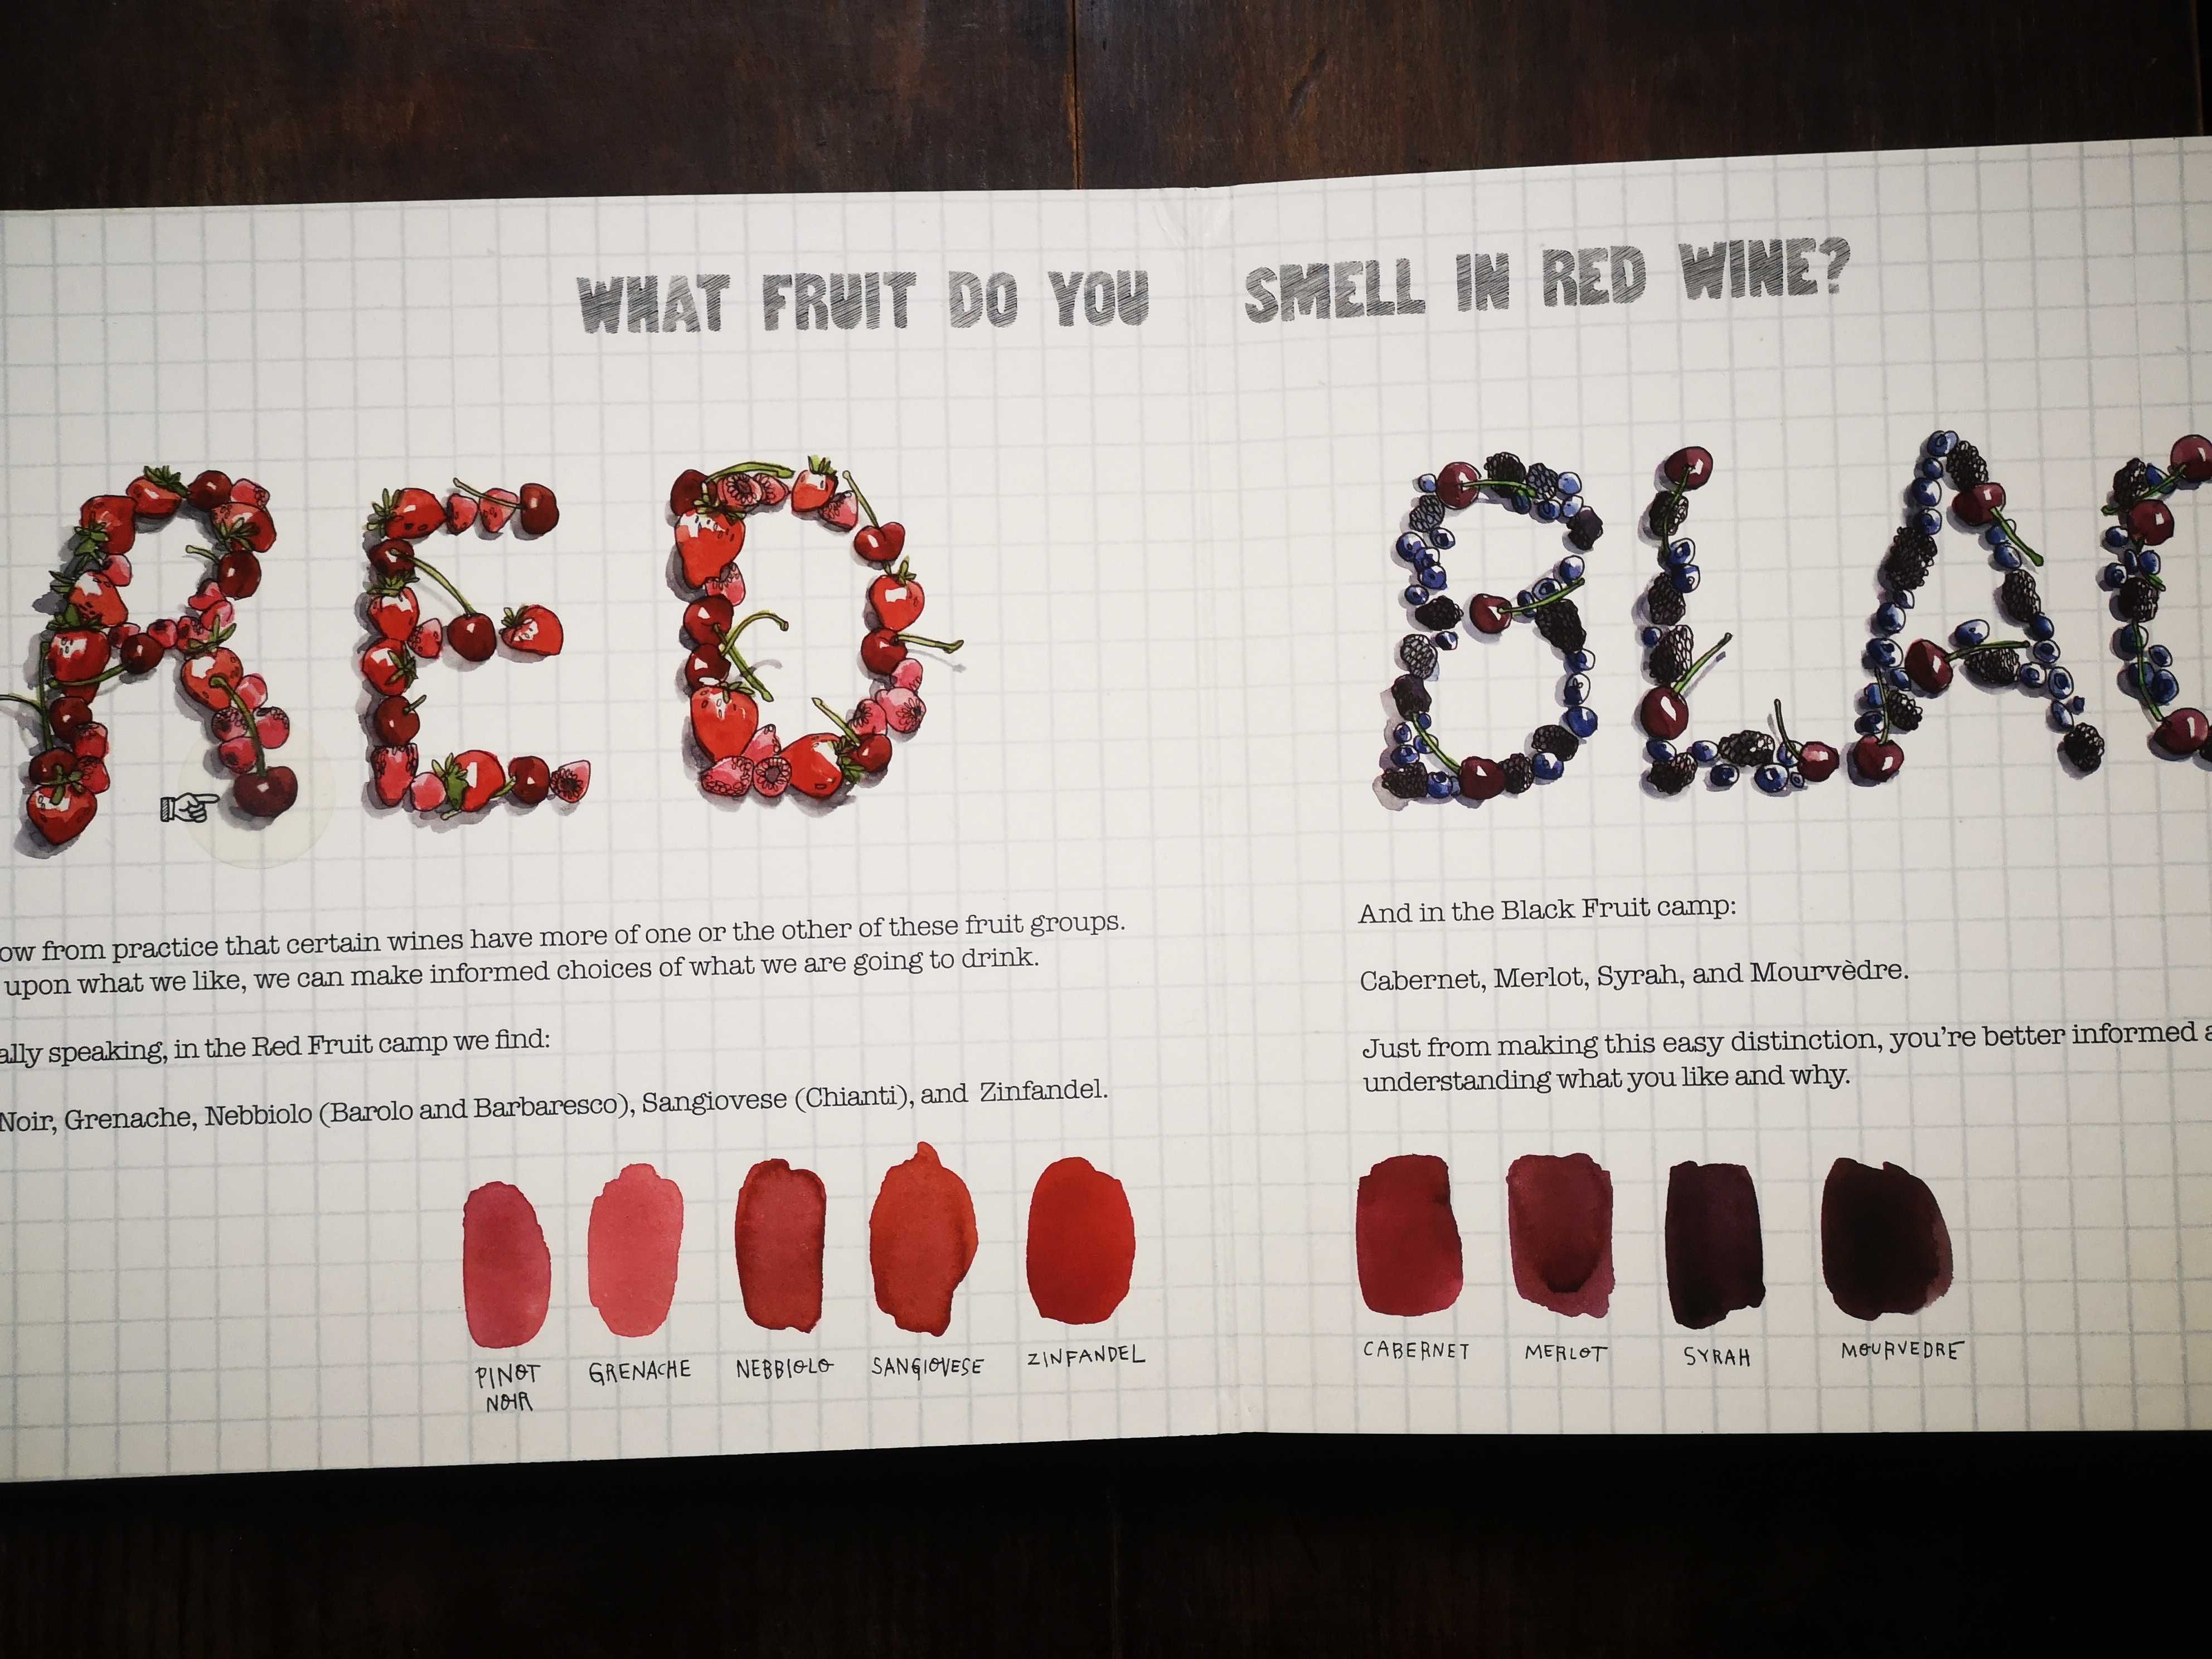 WHAT FRUIT DO YOU SMELL IN RED WINE?
RED
BLAC
from practice that certain wines have more of one or the other of these fruit groups.
upon what we like, we can make informed choices of what we are going to drink.
speaking, in the Red Fruit camp we find:
Noir, Grenache, Nebbiolo (Barolo and Barbaresco), Sangiovese (Chianti), and Zinfandel.
PINOT
NOIR
GRENACHE
NEBBIOLO
SANGIOVESE
ZINFANDEL
And in the Black Fruit camp:
Cabernet, Merlot, Syrah, and Mourvèdre.
Just from making this easy distinction, you're better informed
understanding what you like and why.
CABERNET
MERLOT
SYRAH
MOURVEDRE